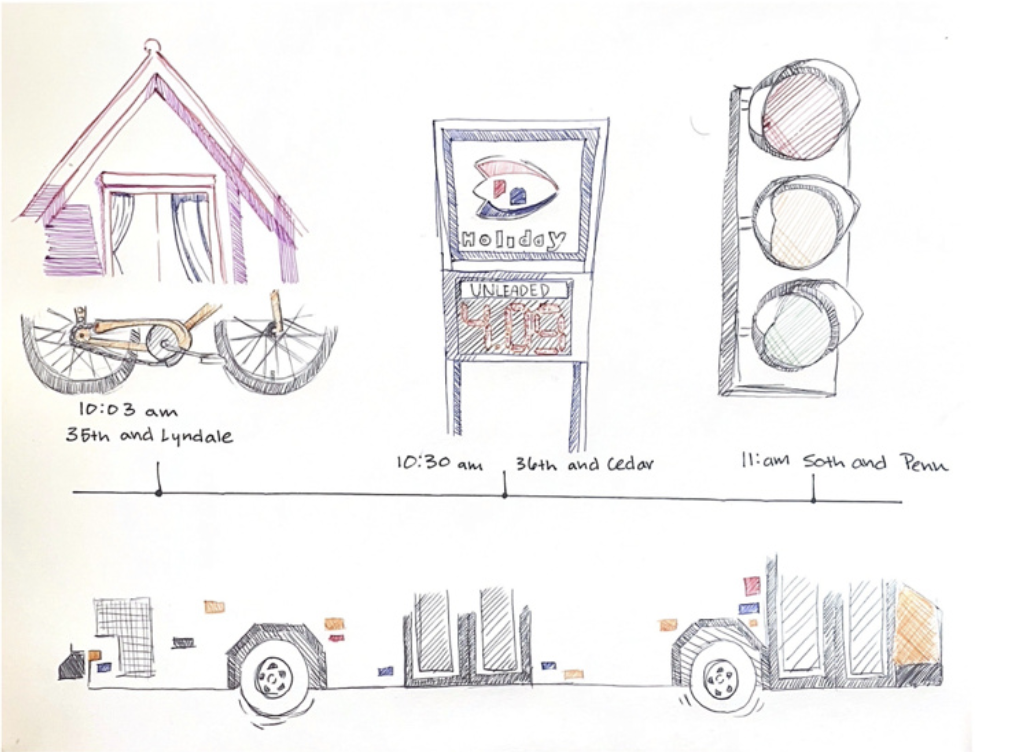 Holiday
UNLEADED
4.09
10:03 am
35th and Lyndale
10:30 am 36th and Cedar
11:am 50th and Penn